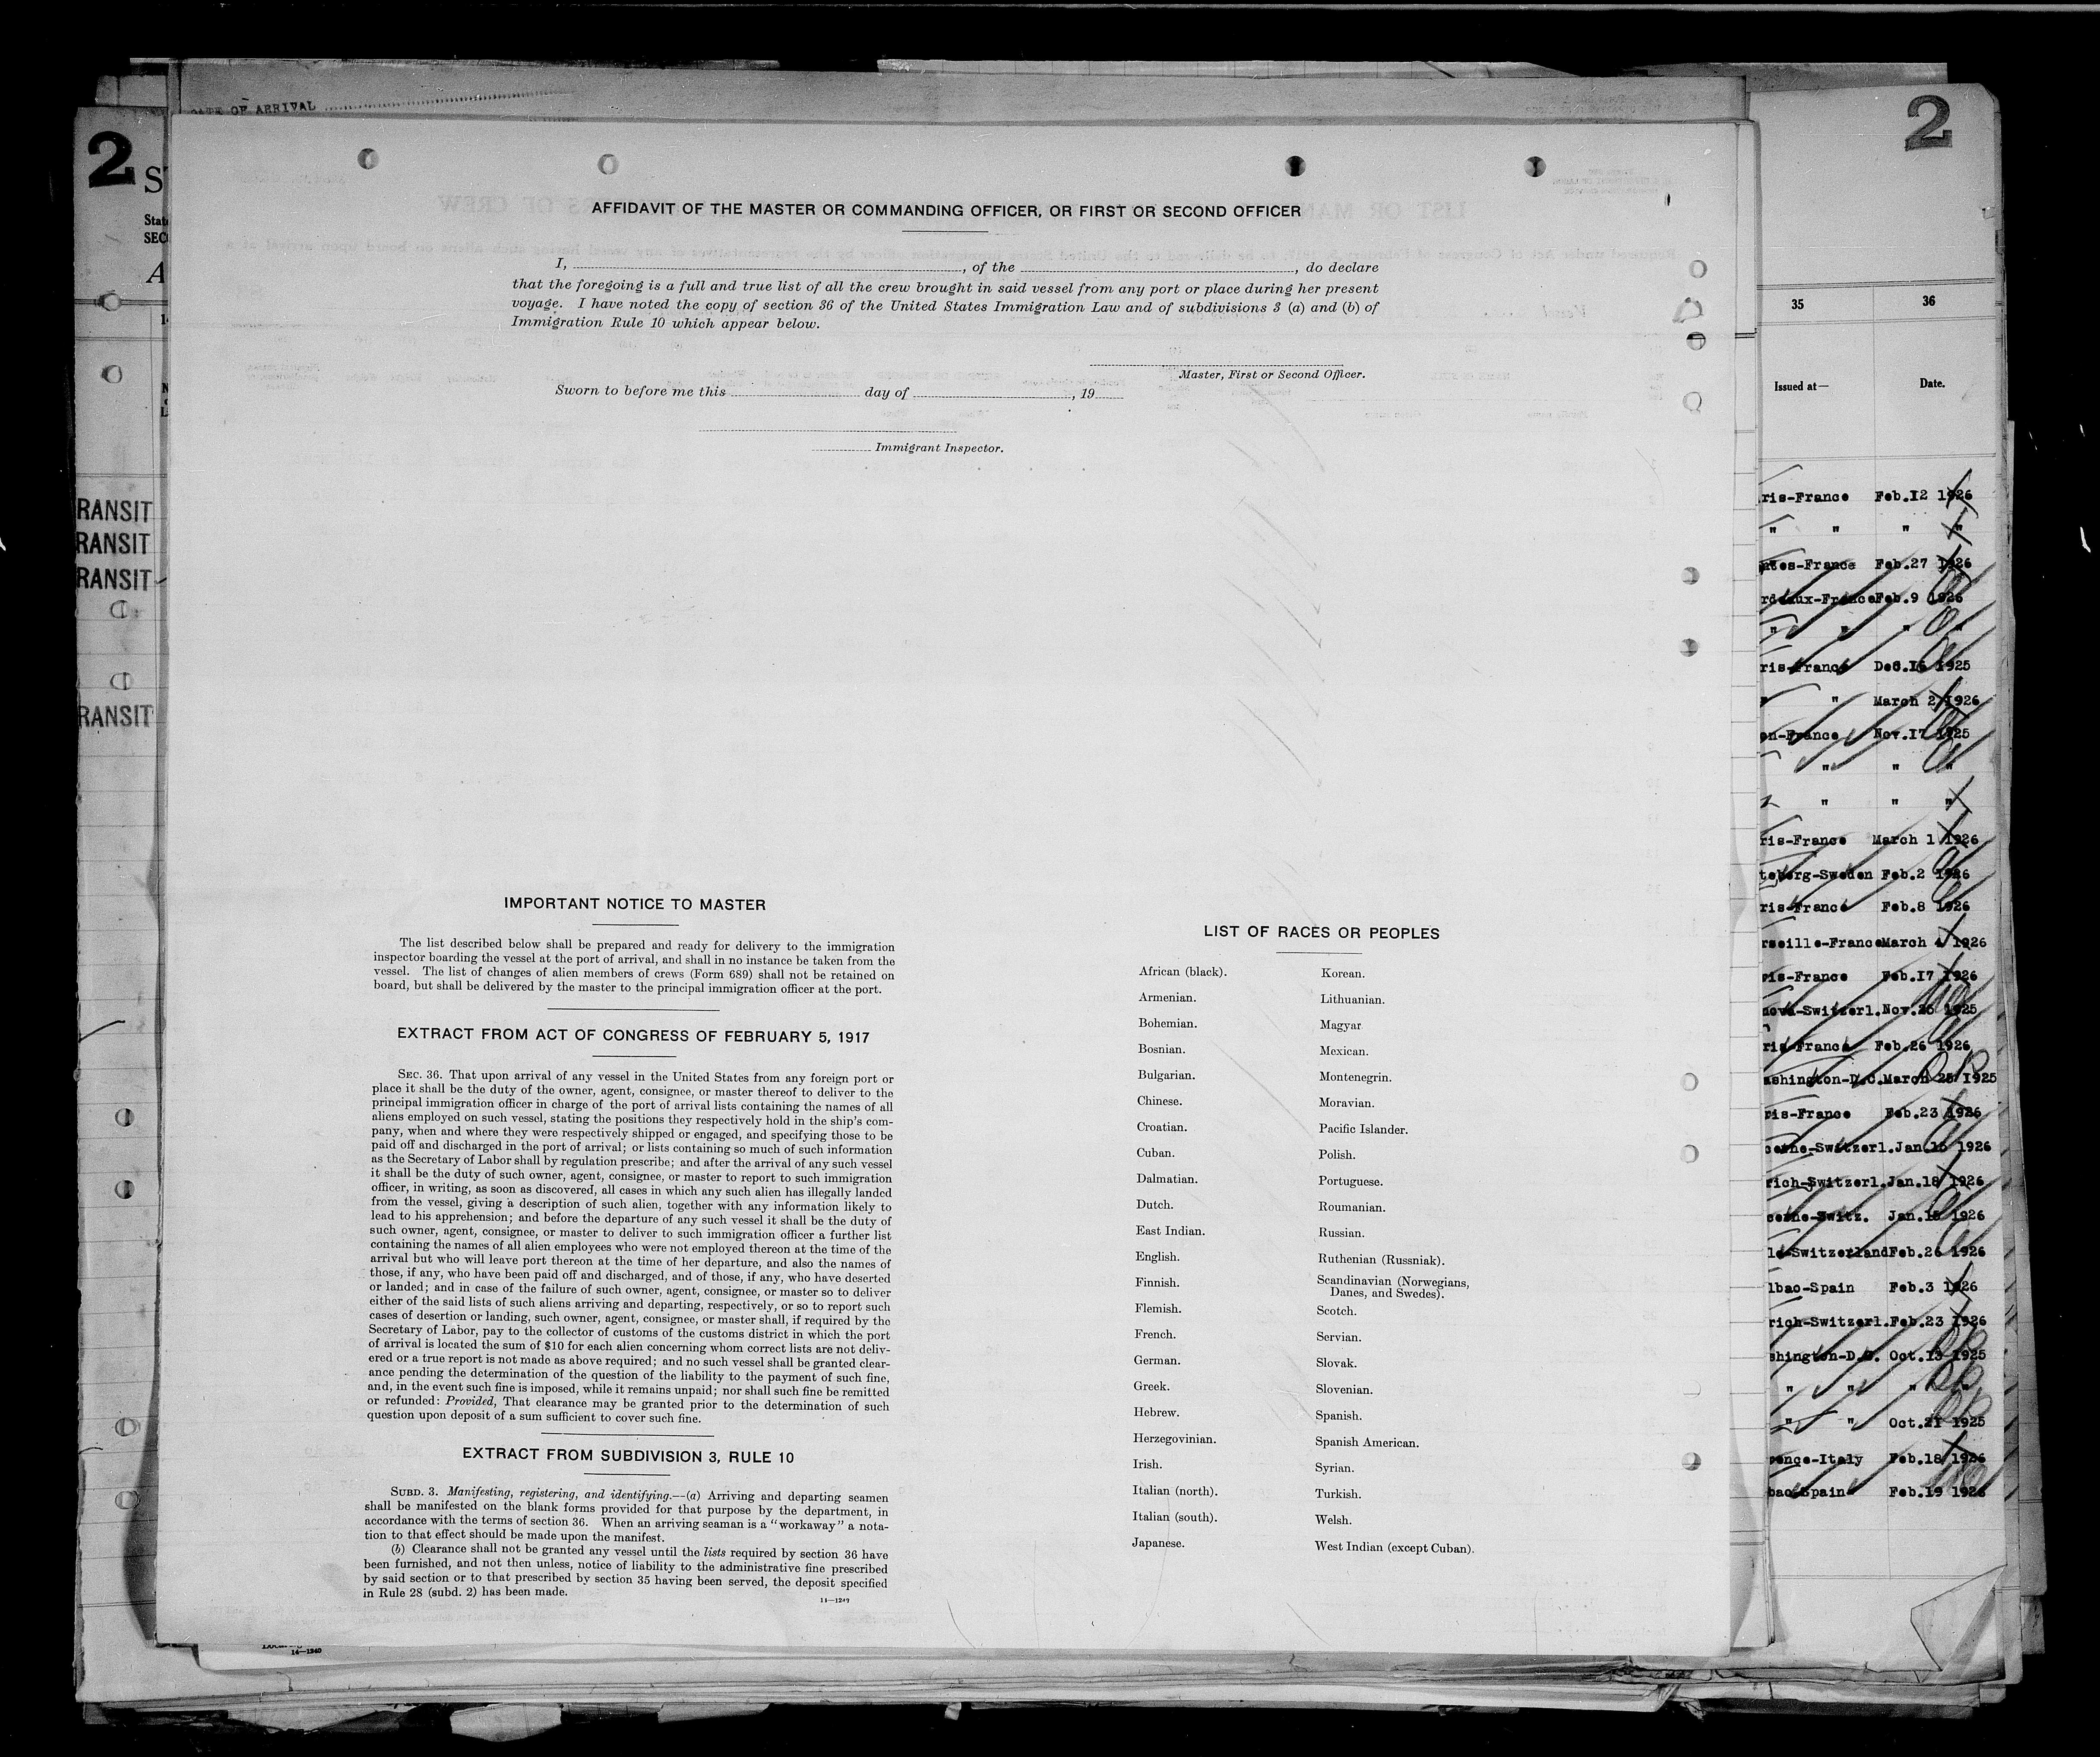 DATE OF ARRIVAL
2
2
AFFIDAVIT OF THE MASTER OR COMMANDING OFFICER, OR FIRST OR SECOND OFFICER
I, , of the , do declare
that the foregoing is a full and true list of all the crew brought in said vessel from any port or place during her present
voyage. I have noted the copy of section 36 of the United States Immigration Law and of subdivisions 3 (a) and (b) of
Immigration Rule 10 which appear below.
Master, First or Second Officer.
Sworn to before me this day of , 19
Immigrant Inspector.
IMPORTANT NOTICE TO MASTER
The list described below shall be prepared and ready for delivery to the immigration
inspector boarding the vessel at the port of arrival, and shall in no instance be taken from the
vessel. The list of changes of alien members of crews (Form 689) shall not be retained on
board, but shall be delivered by the master to the principal immigration officer at the port.
EXTRACT FROM ACT OF CONGRESS OF FEBRUARY 5, 1917
SEC. 36. That upon arrival of any vessel in the United States from any foreign port or
place it shall be the duty of the owner, agent, consignee, or master thereof to deliver to the
principal immigration officer in charge of the port of arrival lists containing the names of all
aliens employed on such vessel, stating the positions they respectively hold in the ship's com-
pany, when and where they were respectively shipped or engaged, and specifying those to be
paid off and discharged in the port of arrival; or lists containing so much of such information
as the Secretary of Labor shall by regulation prescribe; and after the arrival of any such vessel
it shall be the duty of such owner, agent, consignee, or master to report to such immigration
officer, in writing, as soon as discovered, all cases in which any such alien has illegally landed
from the vessel, giving a description of such alien, together with any information likely to
lead to his apprehension; and before the departure of any such vessel it shall be the duty of
such owner, agent, consignee, or master to deliver to such immigration officer a further list
containing the names of all alien employees who were not employed thereon at the time of the
arrival but who will leave port thereon at the time of her departure, and also the names of
those, if any, who have been paid off and discharged, and of those, if any, who have deserted
or landed; and in case of the failure of such owner, agent, consignee, or master so to deliver
either of the said lists of such aliens arriving and departing, respectively, or so to report such
cases of desertion or landing, such owner, agent, consignee, or master shall, if required by the
Secretary of Labor, pay to the collector of customs of the customs district in which the port
of arrival is located the sum of $10 for each alien concerning whom correct lists are not deliv-
ered or a true report is not made as above required; and no such vessel shall be granted clear-
ance pending the determination of the question of the liability to the payment of such fine,
and, in the event such fine is imposed, while it remains unpaid; nor shall such fine be remitted
or refunded: Provided, That clearance may be granted prior to the determination of such
question upon deposit of a sum sufficient to cover such fine.
EXTRACT FROM SUBDIVISION 3, RULE 10
SUBD. 3. Manifesting, registering, and identifying.—(a) Arriving and departing seamen
shall be manifested on the blank forms provided for that purpose by the department, in
accordance with the terms of section 36. When an arriving seaman is a "workaway" a nota-
tion to that effect should be made upon the manifest.
(b) Clearance shall not be granted any vessel until the lists required by section 36 have
been furnished, and not then unless, notice of liability to the administrative fine prescribed
by said section or to that prescribed by section 35 having been served, the deposit specified
in Rule 28 (subd. 2) has been made.
14—1249
LIST OF RACES OR PEOPLES
African (black).
Armenian.
Bohemian.
Bosnian.
Bulgarian.
Chinese.
Croatian.
Cuban.
Dalmatian.
Dutch.
East Indian.
English.
Finnish.
Flemish.
French.
German.
Greek.
Hebrew.
Herzegovinian.
Irish.
Italian (north).
Italian (south).
Japanese.
Korean.
Lithuanian.
Magyar
Mexican.
Montenegrin.
Moravian.
Pacific Islander.
Polish.
Portuguese.
Roumanian.
Russian.
Ruthenian (Russniak).
Scandinavian (Norwegians,
Danes, and Swedes).
Scotch.
Servian.
Slovak.
Slovenian.
Spanish.
Spanish American.
Syrian.
Turkish.
Welsh.
West Indian (except Cuban).
RANSIT
RANSIT
RANSIT
RANSIT
14—1240
35 36
Issued at— Date.
ris-France Feb.12 1926
" " " "
ntes-France Feb.27 1926
rdeaux-France Feb.9 1926
" " " "
ris-France Dec.16 1925
" March 2 1926
en-France Nov.17 1925
" " "
" " "
ris-France March 1 1926
teborg-Sweden Feb.2 1926
ris-France Feb.8 1926
rseille-France March 4 1926
ris-France Feb.17 1926
neva-Switzerl. Nov.25 1925
ris-France Feb.26 1926
ashington-D.C. March 25 1925
ris-France Feb.23 1926
cerne-Switzerl. Jan.15 1926
rich-Switzerl. Jan.18 1926
cerne-Switz. Jan.15 1926
le-Switzerland Feb.26 1926
lbao-Spain Feb.3 1926
rich-Switzerl. Feb.23 1926
shington-D.C. Oct.13 1925
" " " "
" " Oct.21 1925
rence-Italy Feb.18 1926
bao-Spain Feb.19 1926